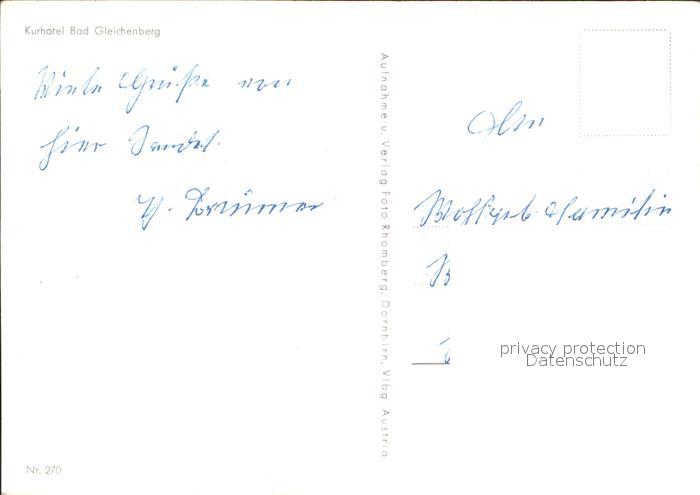 Kurhotel Bad Gleichenberg
Viele Grüße von
hier sendet
An
Wohlgeb. Familie
Aufnahme u. Verlag Foto Rhomberg, Dornbirn, Vlbg. Austria
privacy protection
Datenschutz
Nr. 270